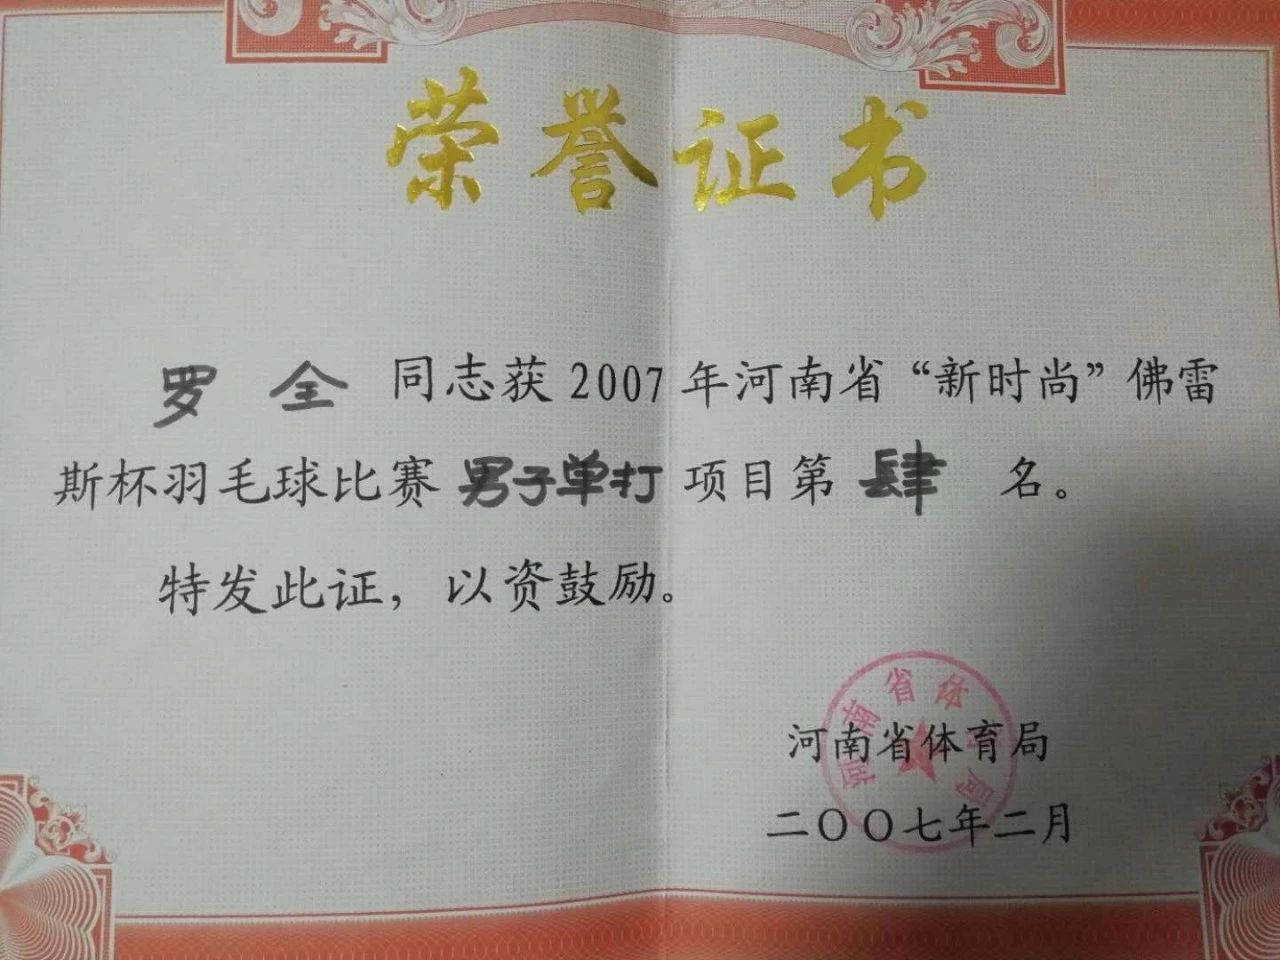 荣誉证书
罗全 同志获2007年河南省“新时尚”佛雷
斯杯羽毛球比赛男子单打项目第肆名。
特发此证，以资鼓励。
河南省体育局
河南省体育局
二〇〇七年二月